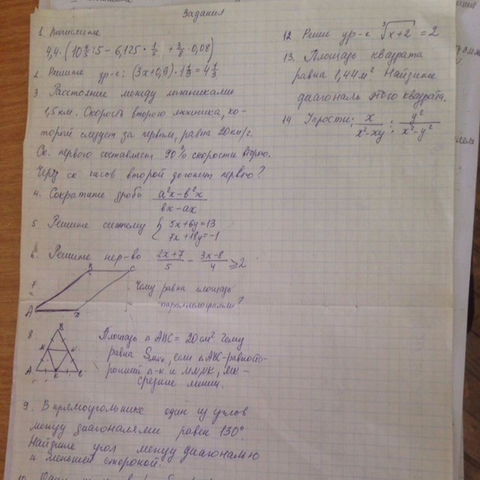 Задания
1. Вычислите
4,4·(10 :5 - 6,125 · + · 0,08)
2. Решите ур-е: (3х+0,9)· =
3. Расстояние между
1,5 км. Скорость второго лыжника, ко-
торой следует за первым, равна 20км/ч.
Ск. первого составляет 90% скорости второго.
Через ск. часов второй догонит первого?
4. Сократите дробь a²x-b²x
bx-ax
5. Решите систему 5x+6y=13
7x+18y=-1
6. Решите нер-во 2x+7 / 5 - 3x-8 / 4 ≥2
7.
Чему равна площадь
параллелограмма?
8.
Площадь △ABC = 20см². Чему
равна если △ABC-равносто-
ронний
средние линии.
9. В прямоугольнике один из углов
между диагоналями равен 130°
Найдите угол между диагональю
и меньшей стороной.
12. Реши ур-е ∛x+2 = 2
13. Площадь квадрата
равна 1,44м². Найдите
диагональ этого квадрата.
14. Упрости: x / x²-xy : y² / x²-y²